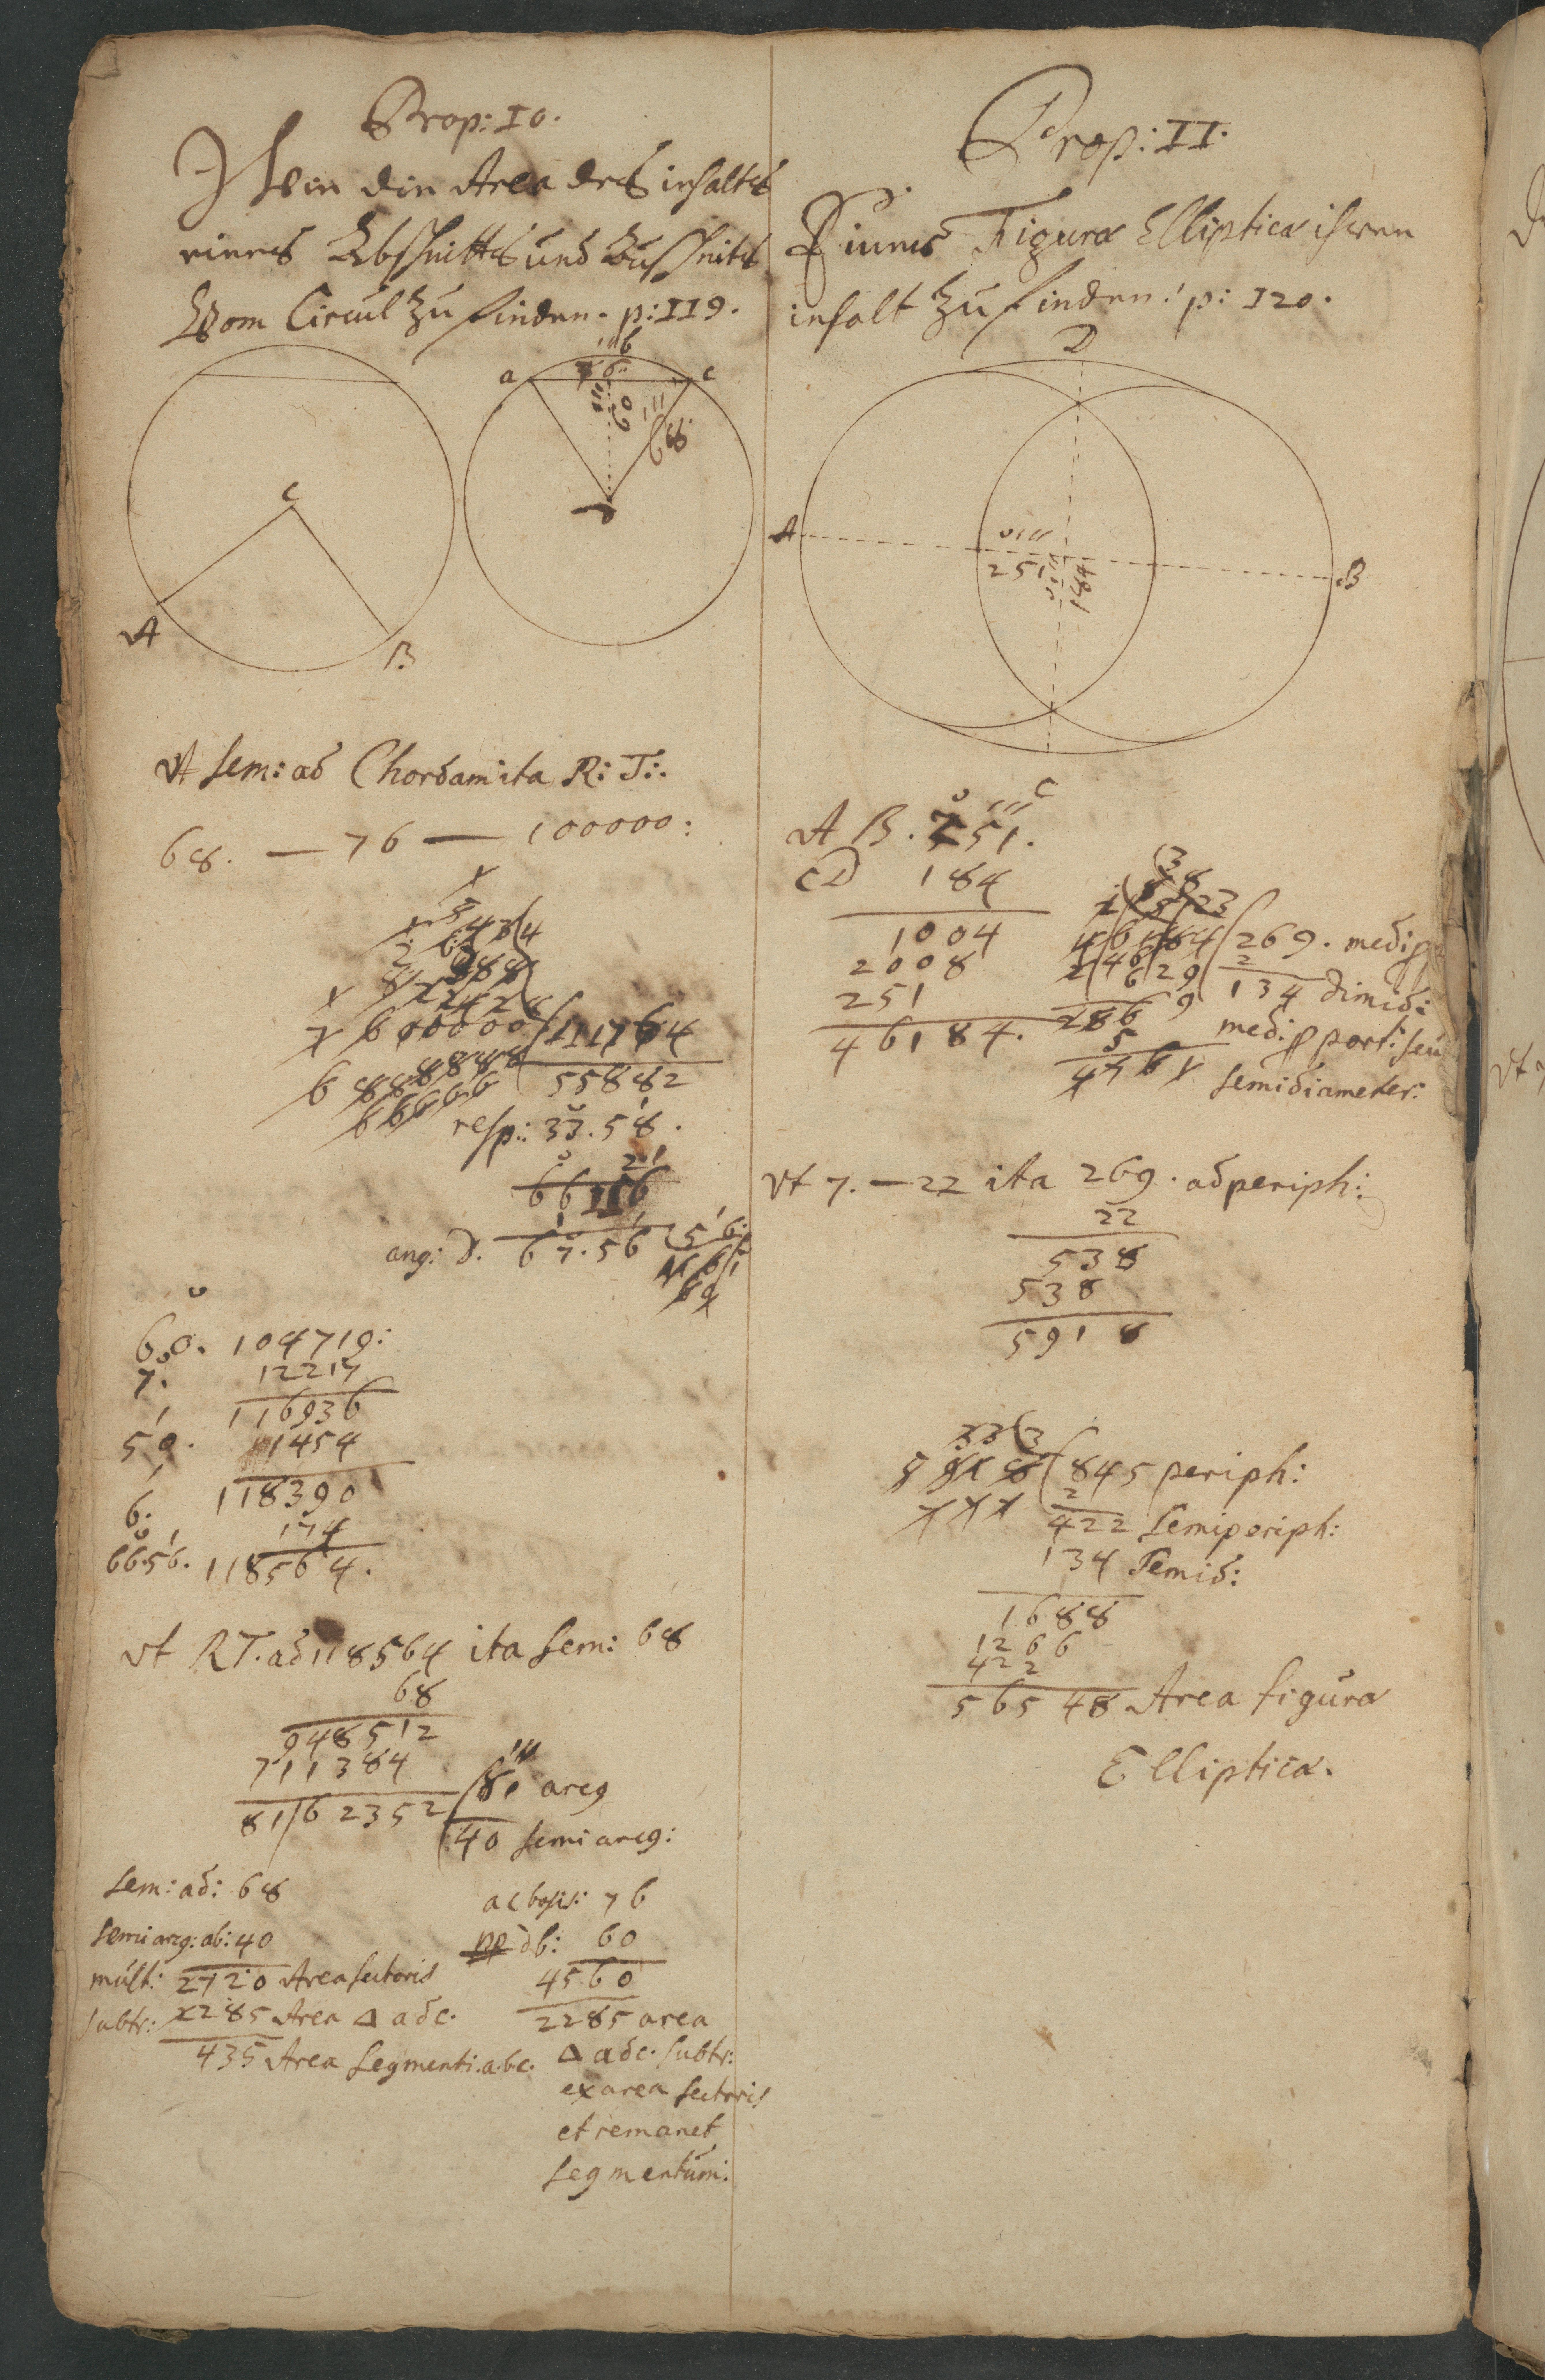 Prop: 10.
Wie die Area des inhalts
eines Abschnitts und Zuschnits
Vom Circul zu finden. p: 119.
b
76
a c
60
68
D
C
A
B
Vt sem: ad Chordam ita R: T:.
68. — 76 — 100000:
7600000 111764
55882
resp: 33.58.
66 116
ang: D. 67.56
60. 104719:
7. 12217
116936
50. 1454
118390
6. 174
66.56. 118564.
Vt RT. ad 118564 ita sem: 68
68
948512
711384
81 arcg
81/62352
40 semi arcg:
sem: ad: 68
semi arcg: ab: 40
mult: 2720 Area sectoris
subtr: 2285 Area Δ adc.
435 Area segmenti. abc.
ac basis: 76
db: 60
4560
2285 area
Δ adc. subtr:
ex area sectoris
et remanet
segmentum:
Prop: 11.
Einer Figura Elliptica ihren
inhalt zu finden: p: 120.
D
A
251
184
B
C
AB. 251.
CD 184
1004
2008
251
46184.
46184 269. medi p
2
134 dimid:
medi: p port: seu
semidiameter:
Vt 7. — 22 ita 269. ad periph:
22
538
538
5918
5918 845 periph:
2
422 semiperiph:
134 semid:
1688
1266
422
56548 Area figura
Elliptica.